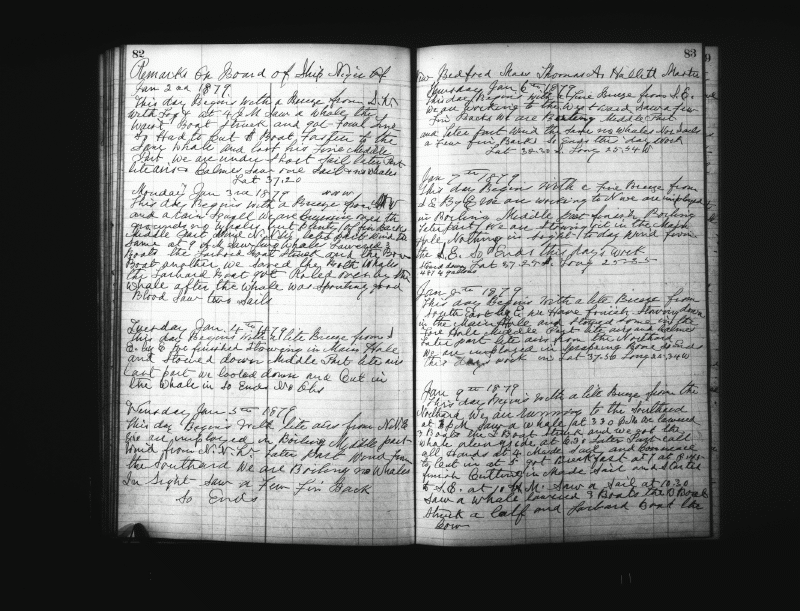 82
Remarks On Board of Ship Niger of
Jan 2nd 1879
This day Begins With a Breeze from S.W.
With Fog at 4 P.M. Saw a Whale the
Waist Boat Struck and got
So Had to Cut A Boat Fasten to the
Whale and lost his Line Middle
Part we are under Short Sail later Part
lite airs Calmes Saw one Sail no Whales
Lat 37.20
Monday Jan 3rd 1879
This day Begins With a Breeze from
and a rain Squall We are Cruising over the
ground no Whales but Plenty of fin backs
Middle Part Wind later Part Wind the
Same at 9 A.M. Saw Whale lowered 3
Boats the Larboard Boat Struck and the Bow
Boat another We Saved the Both Whale
the Larboard Boat got Rolled over by the
Whale after the Whale was Spouting good
Blood Saw two Sails
Tuesday Jan 4th 1879
This day Begins With A lite Breeze from S
E. by E we finished Stowing in Main Hole
and Stowed down Middle Part lite airs
last part we cooled down and Cut in
the Whale in So Ends No Obs
Wensday Jan 5th 1879
This day Begins With lite airs from N.N.E
We are employed in Boiling Middle part
Wind from N.N.W. Later Part Wind from
the Southard We are Boiling no Whales
In Sight Saw a Few Fin Back
So Ends
83
New Bedford Mass Thomas A. Hallett Master
Thursday Jan 6th 1879
This day Begins With a fine Breeze from S.E.
We are working to the Westward Saw a few
Fin Backs We are Middle Part
and later part Wind the Same no Whales
a Few fin Backs So Ends the day Work
Lat 38.30 Long 25.34 W
Jan 7th 1879
This day Begins With a Fine Breeze from
S.E. By E. We are working to N we are employed
in Boiling Middle Part finish Boiling
later part We are Stowing in the Main
Hole Nothing in Sight to day Wind from
the S.E. So Ends this days Work
Lat 37.27 Long 25.25
gallons
Jan 8th 1879
This day Begins With a lite Breeze from
South East We Have finish Stowing down
in the Main Hole and Stowed Some in the
Fore Hole Middle Part lite airs and Calmes
later part lite airs from the Northard
We are employed in Bone So Ends
This days work in Lat 37.56 Long 25.34 W
Jan 9th 1879
This day Begins With a lite Breeze from the
Northard We are Running to the Southard
at 3 P.M. Saw a Whale at 3.30 We lowered
3 Boats the Boat Struck and we got the
Whale along side at 6.30 Later Part call
all Hands at 4 Made Sail and commence
to Cut in at 5 got Breakfast at 7 at 8
finish Cutting in Made Sail and Started
to S.E. at 10 A.M. Saw a Sail at 10.30
Saw a Whale lowered 3 Boats the B Boat
Struck a Calf and Larboard Boat the
Cow